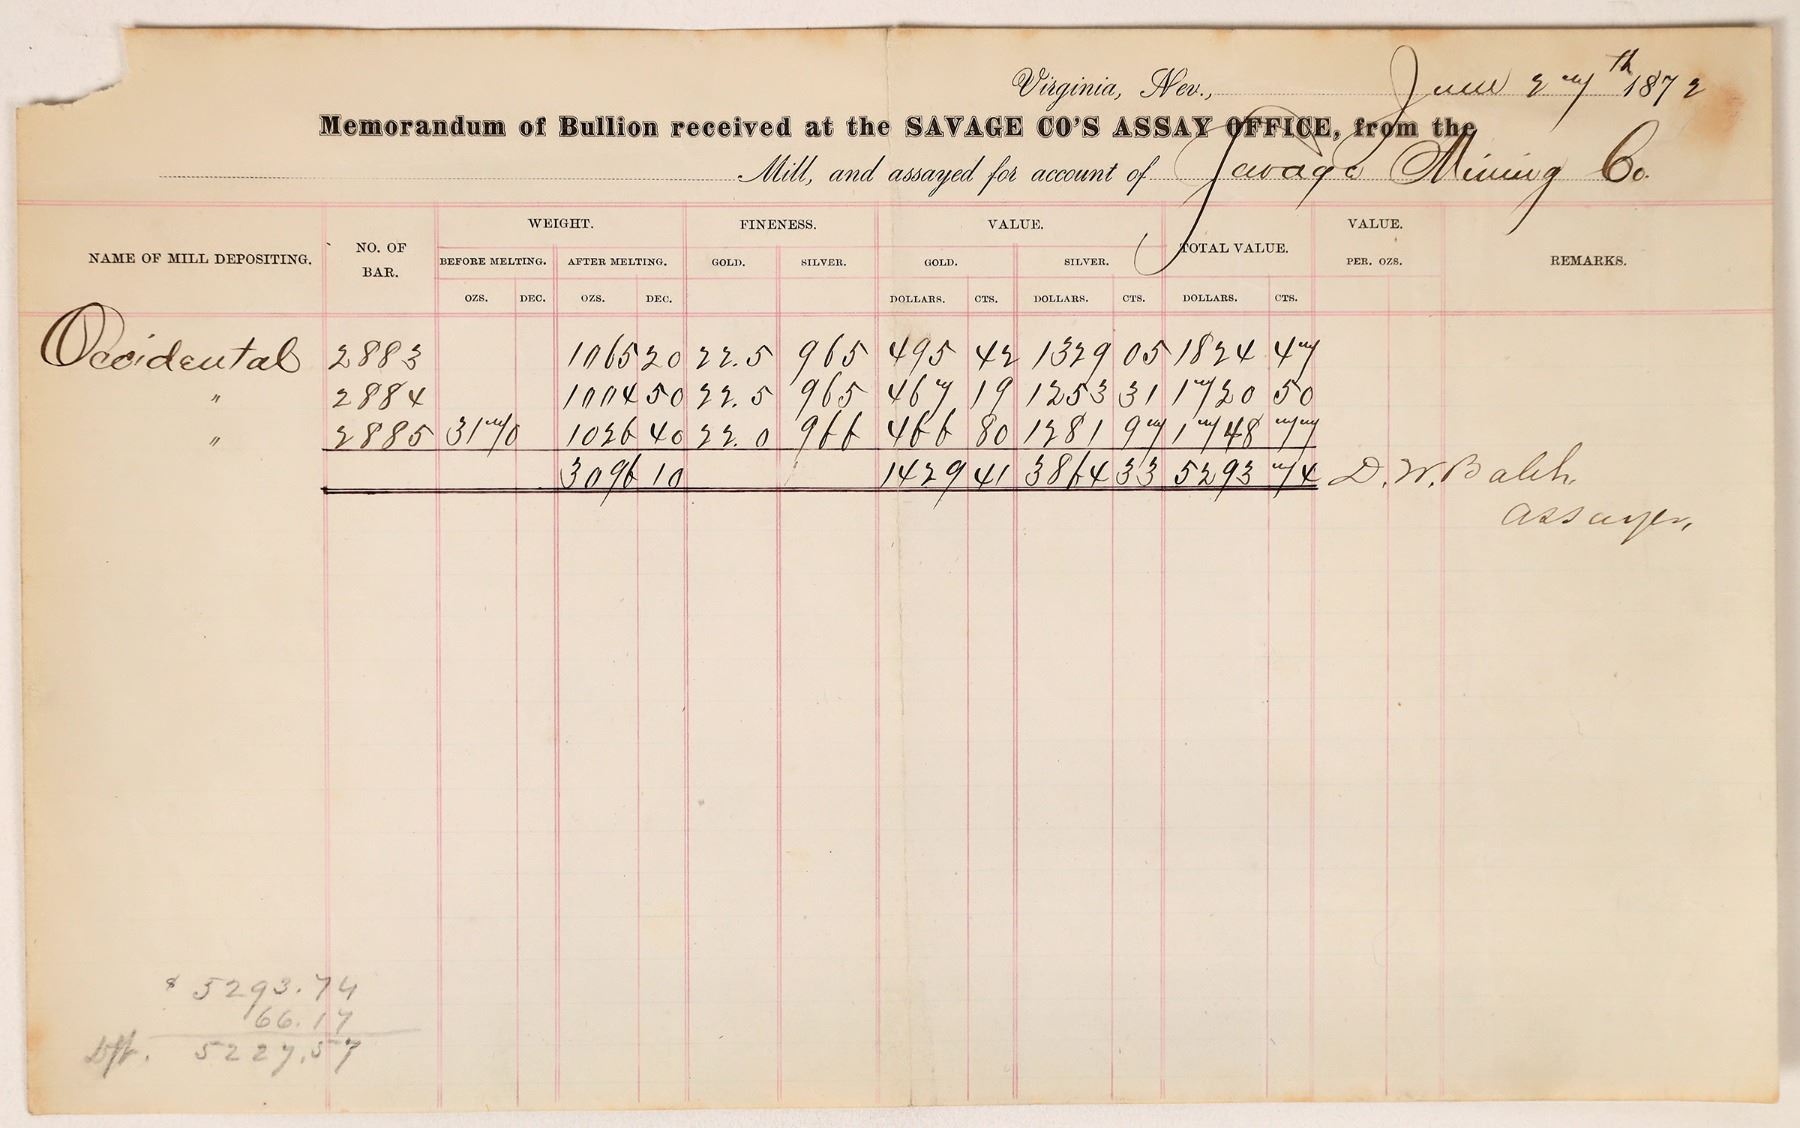 Virginia, Nev., June 27th 1872
Memorandum of Bullion received at the SAVAGE CO'S ASSAY OFFICE, from the
Mill, and assayed for account of Savage Mining Co.
WEIGHT. FINENESS. VALUE. VALUE.
NAME OF MILL DEPOSITING. NO. OF BAR. BEFORE MELTING. AFTER MELTING. GOLD. SILVER. GOLD. SILVER. TOTAL VALUE. PER. OZS. REMARKS.
OZS. DEC. OZS. DEC. DOLLARS. CTS. DOLLARS. CTS. DOLLARS. CTS.
Occidental 2883 1065 20 22.5 965 495 42 1329 05 1824 47
" 2884 1004 50 22.5 965 467 19 1253 31 1720 50
" 2885 3170 1026 40 22.0 966 466 80 1281 97 1748 77
3096 10 1429 41 3864 33 5293 74 D. W. Balch.
Assayer,
$ 5293.74
66.17
Dft. 5227.57